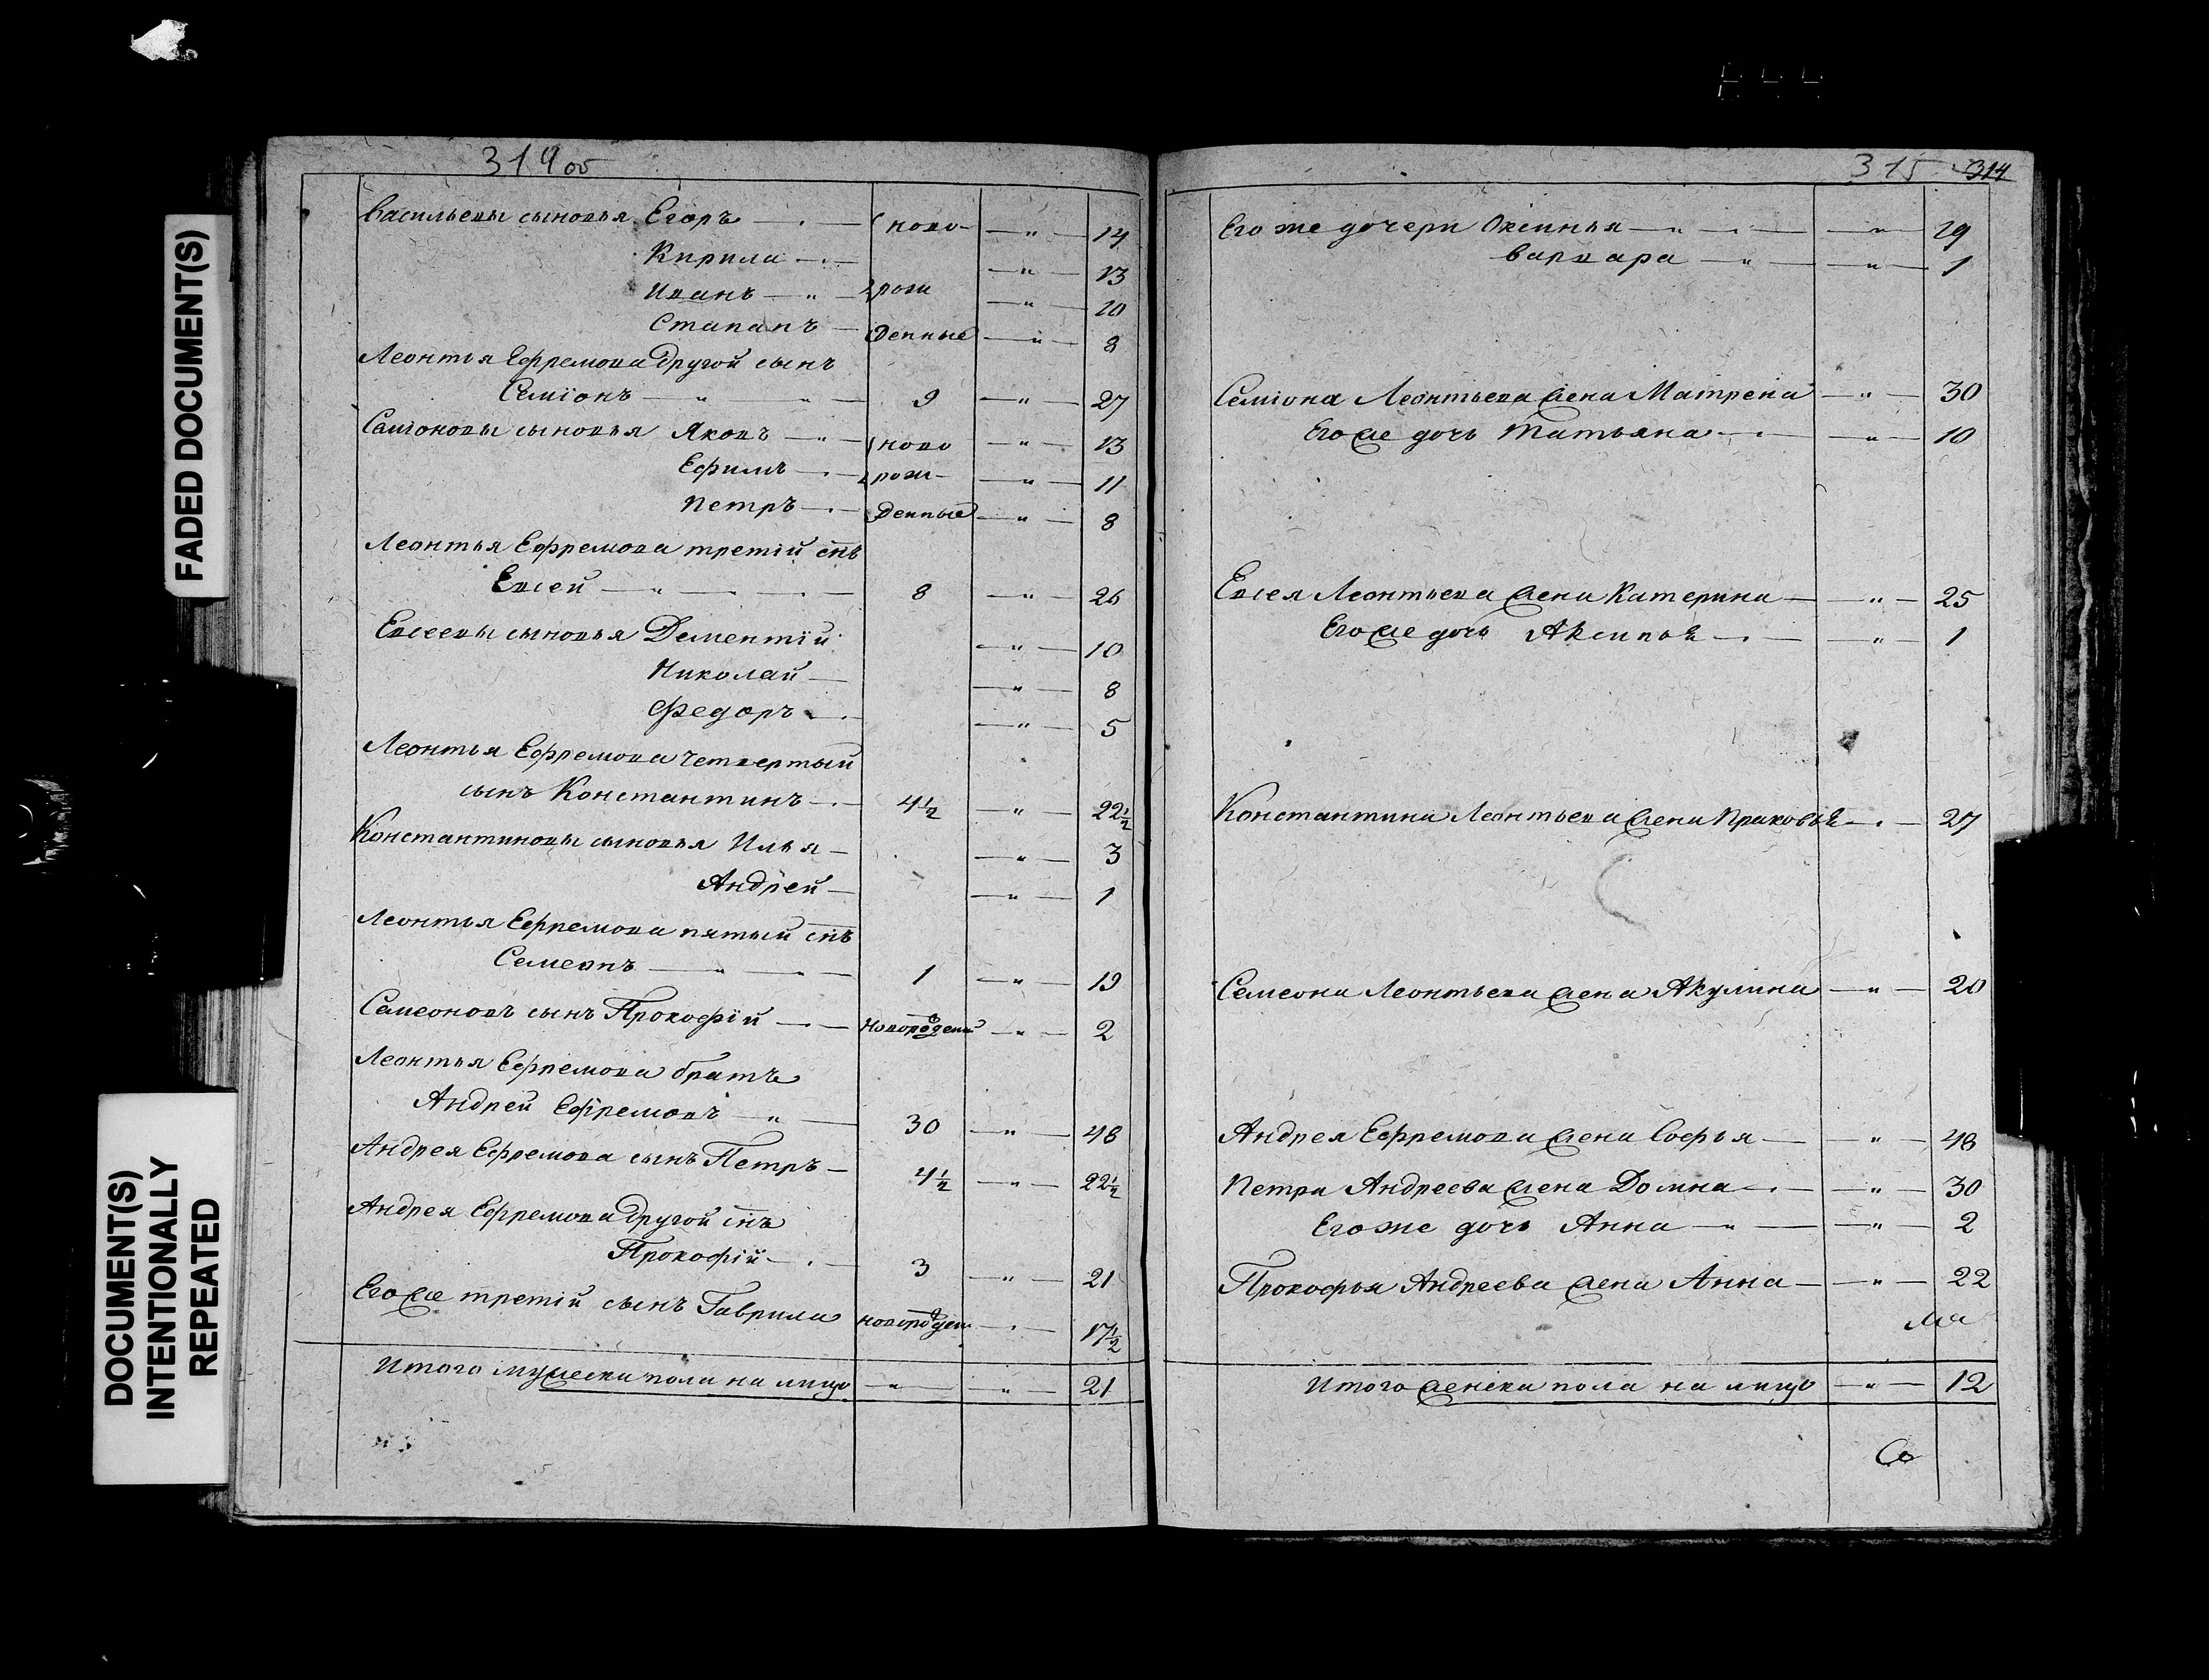 FADED DOCUMENT(S)
DOCUMENT(S)
INTENTIONALLY
REPEATED
314 об
Васильевы сыновья Егоръ ново- " 14
Кирила " 13
Иванъ " рож " 10
Стапанъ денные " 8
Леонтья Ефремова другой сынъ
Семіонъ " " 9 " 27
Саміоновы сыновья Яковъ " ново " 13
Ефимъ рож- " 11
Петръ денные " 8
Леонтья Ефремова третій снъ
Евсей " 8 " 26
Евсеевы сыновья Дементій " 10
Николай " 8
Федоръ " 5
Леонтья Ефремова четвертый
сынъ Константинъ 4½ " 22½
Константиновы сыновья Илья " 3
Андрей " 1
Леонтья Ефремова пятый снъ
Семеонъ " 1 " 19
Самеоновъ сынъ Прокофій новорожден " 2
Леонтья Ефремова братъ
Андрей Ефремовъ " 30 " 48
Андрея Ефремова сынъ Петръ 4½ " 22½
Андрея Ефремова другой снъ
Прокофій 3 " 21
Егоже третій сынъ Гаврила новорожден 17½
Итого мужеска пола на лицо " " 21
315 314
Его же дочери Оксинья " " 19
Варвара " " 1
Семіона Леонтьева жена Матрена " 30
Егоже дочь Татьяна " 10
Евсея Леонтьева жена Катерина " 25
Егоже дочь Аксинья " 1
Константина Леонтьева жена Праковья 27
Самеона Леонтьева жена Акулина " 20
Андрея Ефремова жена Софья " 48
Петра Андреева жена Домна " 30
Егоже дочь Анна " " 2
Прокофья Андреева жена Анна " 22
Итого женска пола на лицо " 12